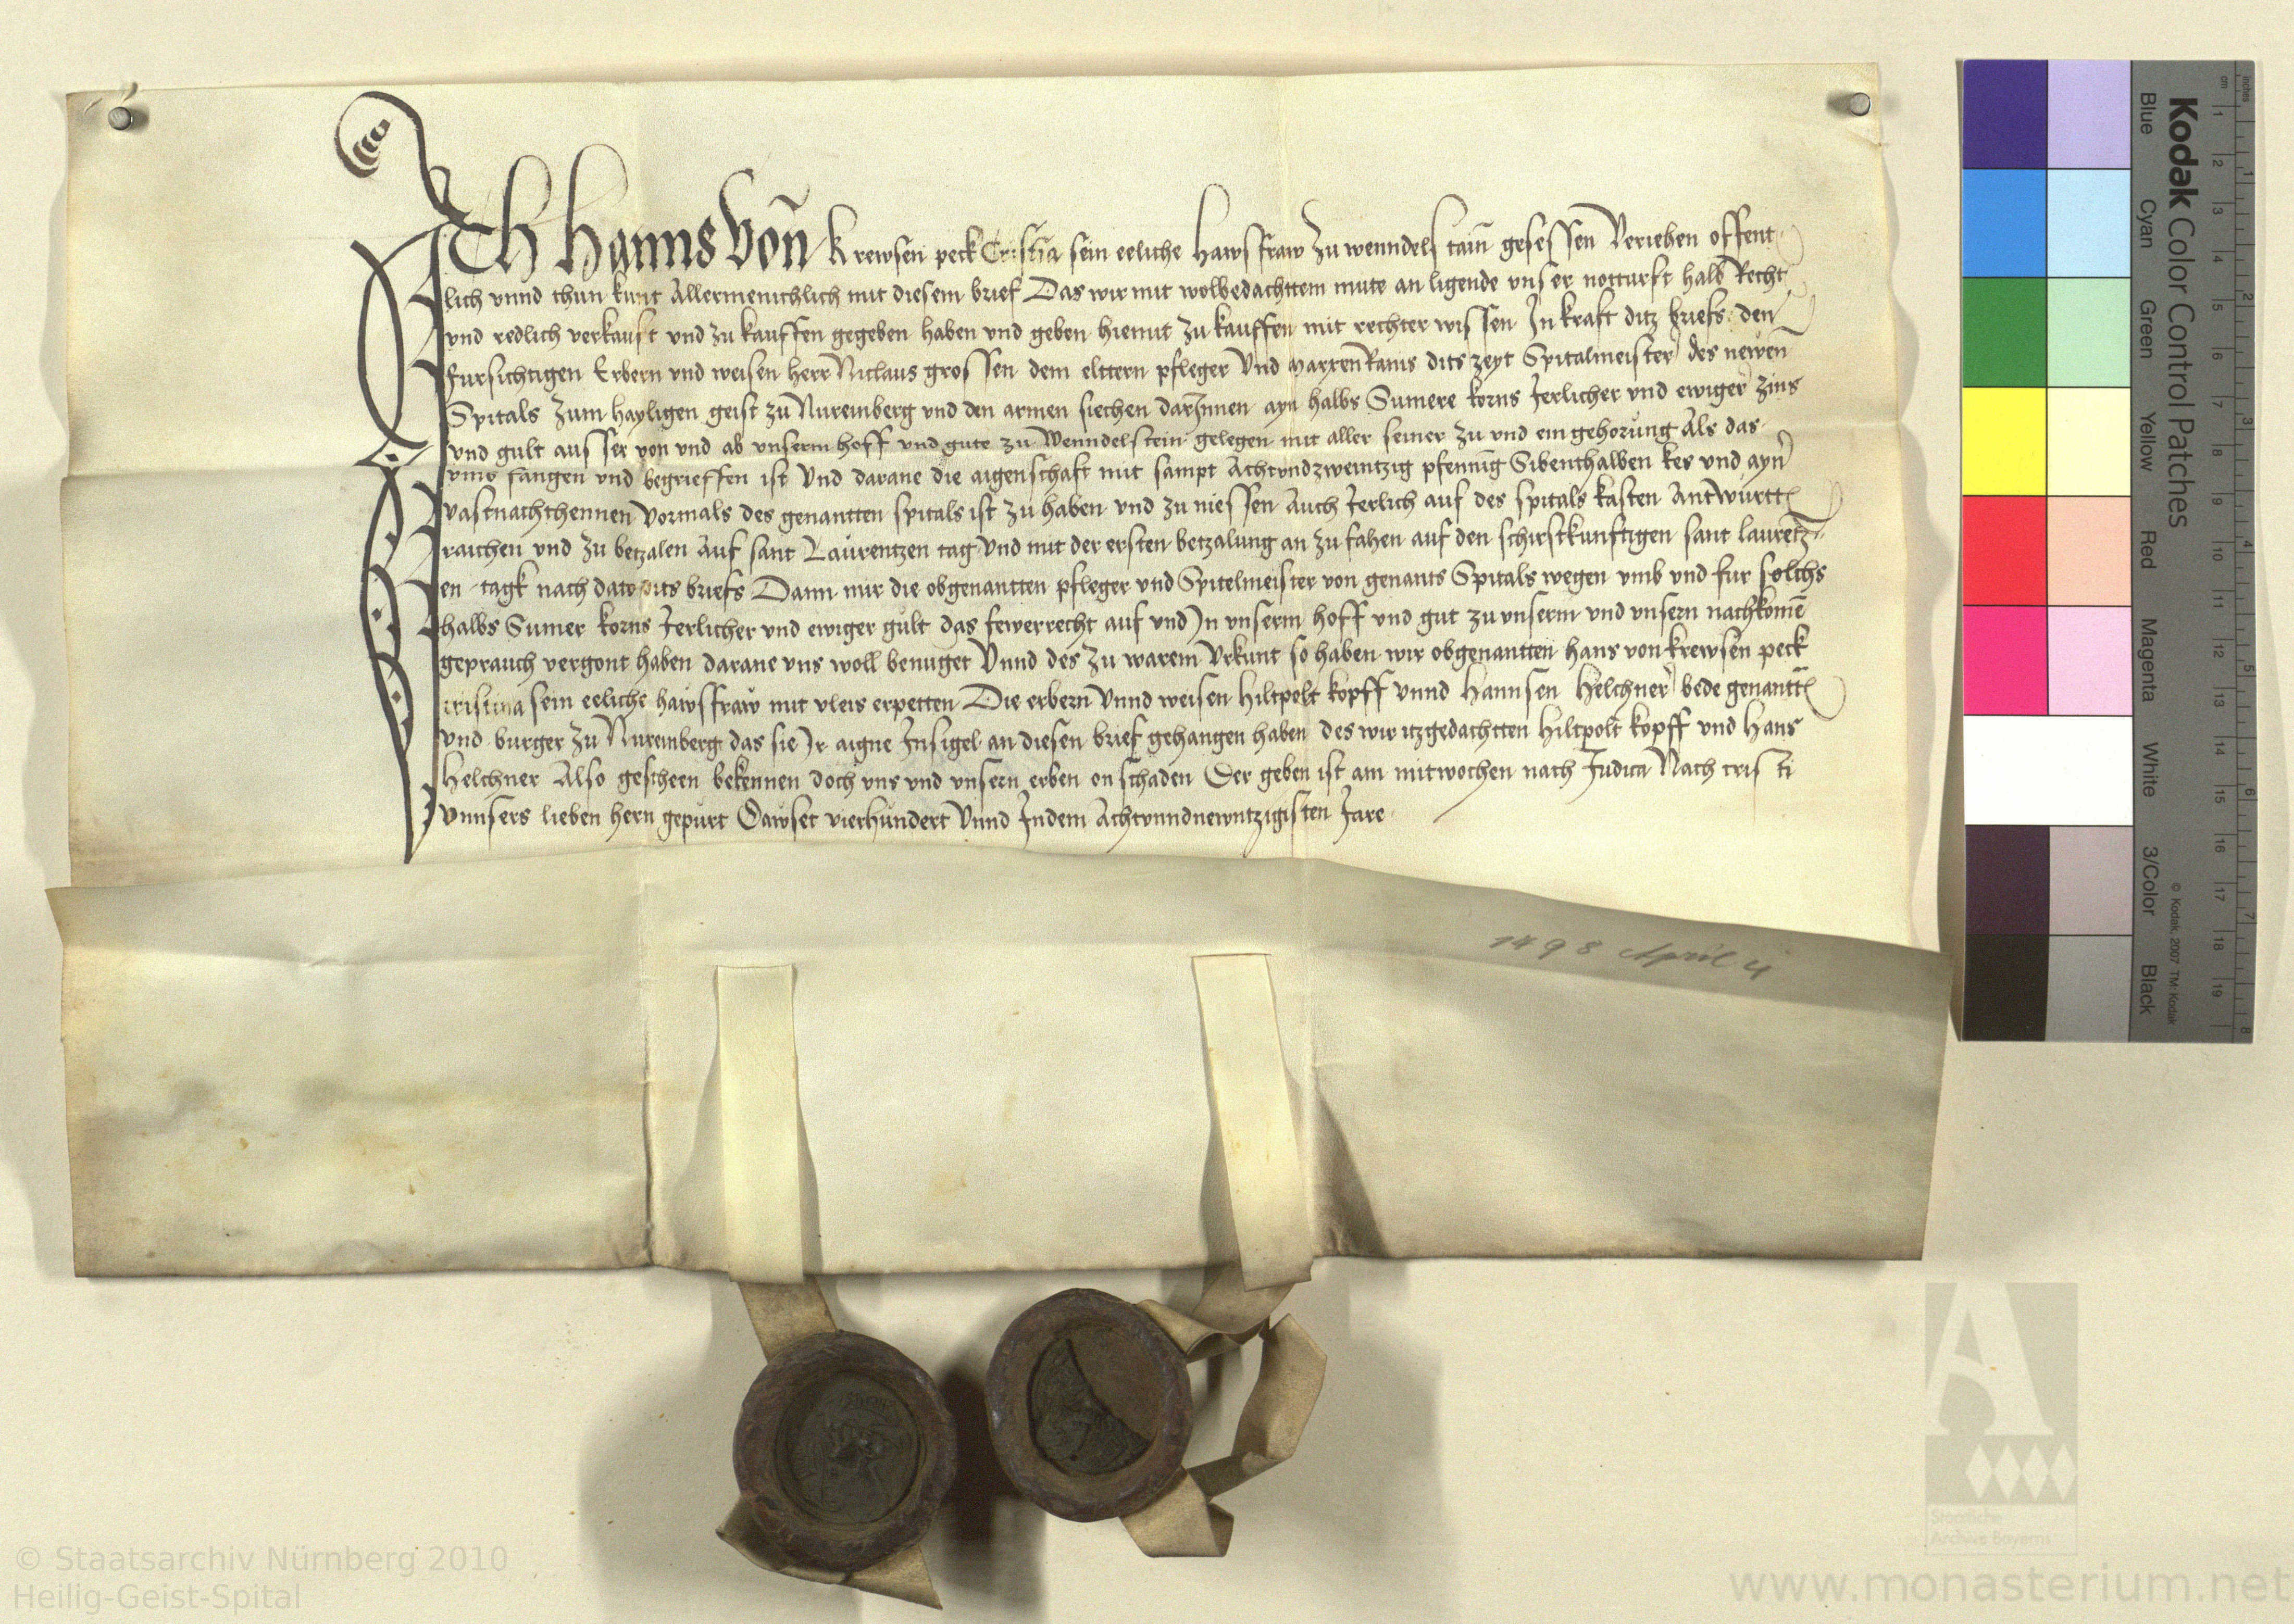 Ich Hanns Von Krewsen peck Cristīa sein eeliche Hawsfraw zu wenndelstain gesessen Veriehen offent
lich vnnd thun kunt Allermenichlich mit diesem brief Das wir mit wolbedachttem mute an ligende vnser notturft halb Recht
vnd redlich verkauft vnd zu kauffen gegeben haben vnd geben hiemit zu kauffen mit rechter wissen In kraft ditz briefs den
fursichtigen Erbern vnd weisen herr Niclaus grossen dem elttern pfleger Vnd marxen Rams dits zeyt Spitalmeister des newen
Spitals zum hayligen geist zu Nuremberg vnd den armen siechen darInnen ayn halbs Sumere korns Jerlicher vnd ewiger zins
vnd gult ausser von vnd ab vnserm hoff vnd gute zu Wenndelstein gelegen mit aller seiner zu vnd ein gehorung Als das
vmb fangen vnd begrieffen ist Vnd darane die aigenschaft mit sampt Achtvndzweintzig pfennig Sibenthalben kes vnd ayn
vastnachthennen Vormals des genantten spitals ist zu haben vnd zu niessen Auch Jerlich auf des spitals kasten Antwurtt
raichen vnd zu betzalen Auf sant Laurentzen tag Vnd mit der ersten betzalung an zu fahen auf den schirstkunftigen sant laurētz
en tagk nach dato dits briefs Dann mir die obgenantten pfleger vnd Spitelmeister von genants Spitals wegen vmb vnd fur solchs
halbs Sumer korns Jerlicher vnd ewiger gult das fewerrecht auf vnd In vnserm hoff vnd gut zu vnserm vnd vnsern nachkomē
geprauch vergont haben darane vns woll benuget Vnnd des zu warem Vrkunt so haben wir obgenantten hans von krewsen peck
cristina sein eeliche hawsfraw mit vleis erpetten Die erbern Vnnd weisen Hiltpolt kopff vnnd Hannsen Helchner bede genantt
vnd burger zu Nuremberg das sie Ir aigne Insigel an diesen brief gehangen haben des wir itzgedachtten Hiltpolt kopff vnd Hans
Helchner Also gescheen bekennen doch vns vnd vnsern erben on schaden Der geben ist am mitwochen nach Judica Nach cristi
Vnnsers lieben hern gepurt Dawset vierhundert Vnnd Indem Achtvnndnewntzigisten Jare
1498 April 4
Kodak Color Control Patches
Blue Cyan Green Yellow Red Magenta White 3/Color Black
cm 1 2 3 4 5 6 7 8 9 10 11 12 13 14 15 16 17 18 19
inches 1 2 3 4 5 6 7 8
© Kodak, 2007 TM: Kodak
Staatliche
Archive Bayerns
© Staatsarchiv Nürnberg 2010
Heilig-Geist-Spital
www.monasterium.net